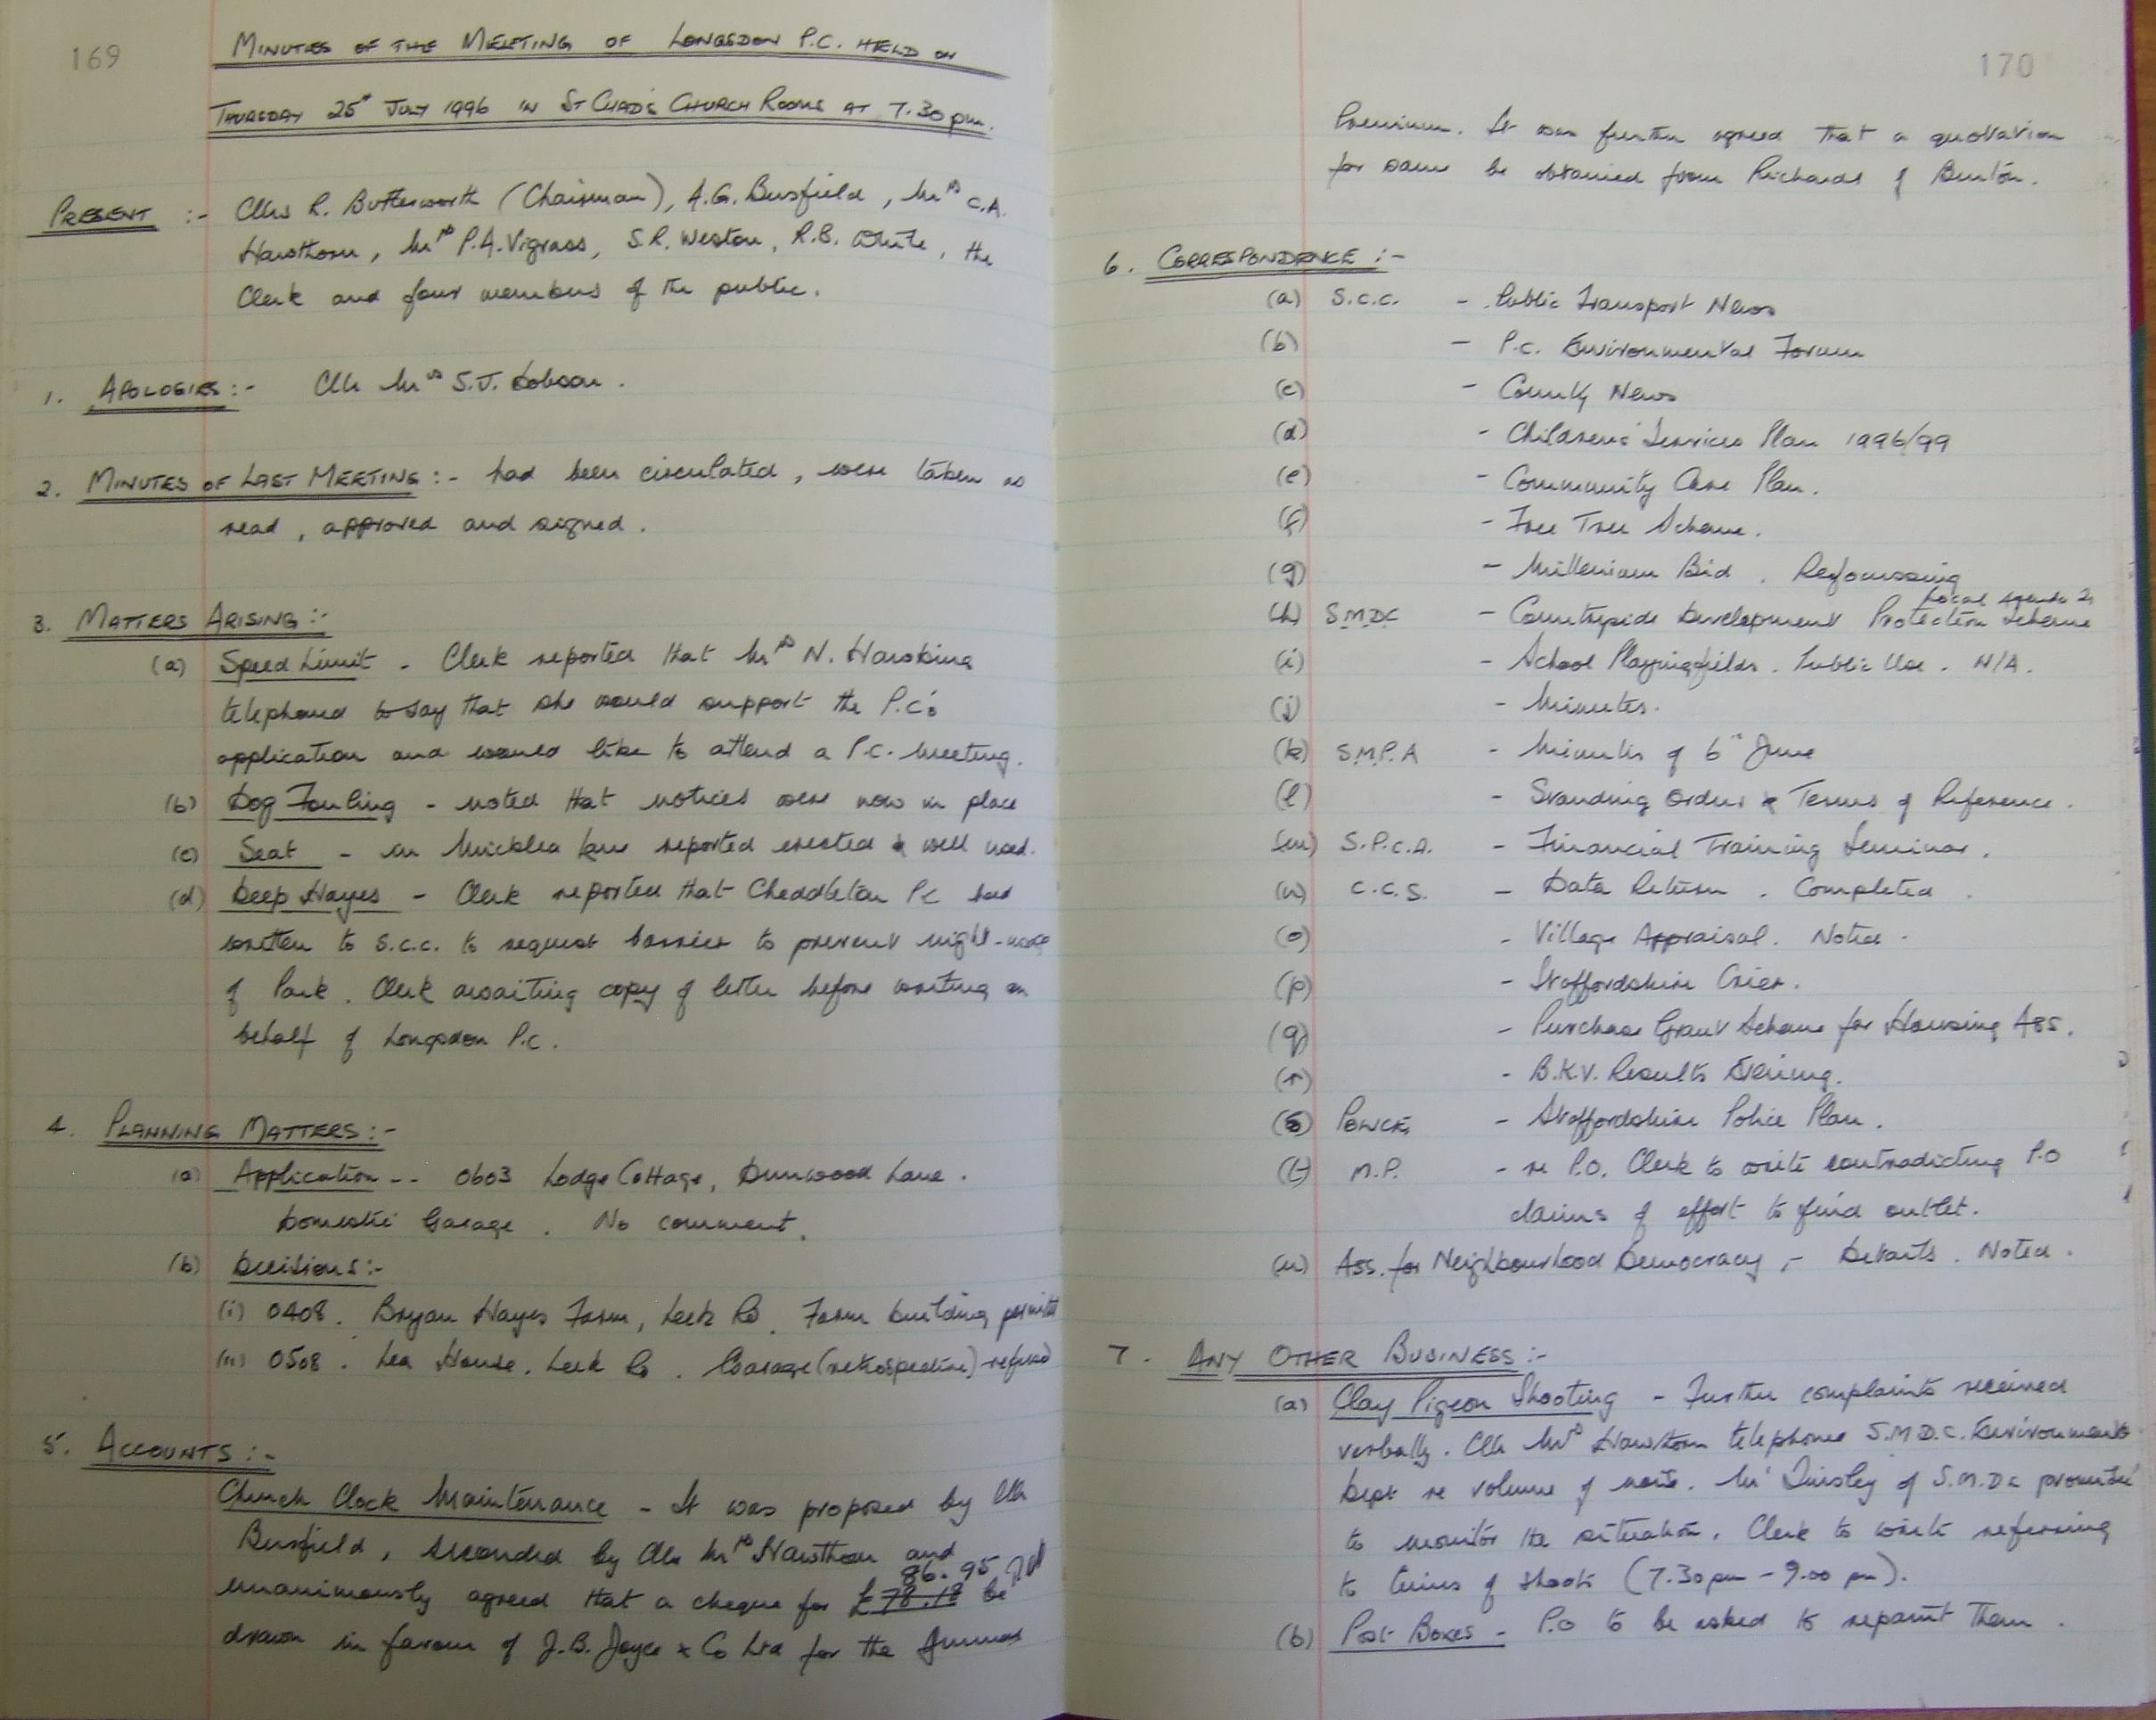 169
MINUTES OF THE MEETING OF LONGSDON P.C. HELD ON
THURSDAY 25th JULY 1996 IN ST CHAD'S CHURCH ROOMS AT 7.30pm.
PRESENT :- Cllrs R. Butterworth (Chairman), A.G. Busfield, Mrs C.A.
Hawthorn, Mrs P.A. Vigrass, S.R. Weston, R.B. White, the
Clerk and four members of the public.
1. APOLOGIES :- Cllr Mrs S.J. Dobson.
2. MINUTES OF LAST MEETING :- had been circulated, were taken as
read, approved and signed.
3. MATTERS ARISING :-
(a) Speed Limit - Clerk reported that Mrs N. Hawkins
telephoned to say that she would support the P.C's
application and would like to attend a P.C. Meeting.
(b) Dog Fouling - noted that notices were now in place
(c) Seat - on Micklea Lane reported erected & well used.
(d) Deep Hayes - Clerk reported that Cheddleton PC had
written to S.C.C. to request barrier to prevent night-use
of Park. Clerk awaiting copy of letter before writing on
behalf of Longsdon P.C.
4. PLANNING MATTERS :-
(a) Application -- 0603 Lodge Cottage, Dunwood Lane.
Domestic Garage. No comment.
(b) Decisions :-
(i) 0408. Bryan Hayes Farm, Leek Rd. Farm building permitted
(ii) 0508. Lea House. Leek Rd. Garage (retrospective) - refused
5. ACCOUNTS :-
Church Clock Maintenance - It was proposed by Cllr
Busfield, seconded by Cllr Mrs Hawthorn and
86.95
unanimously agreed that a cheque for £78.18 be
drawn in favour of J.B. Joyce & Co Ltd for the Annual
170
Premium. It was further agreed that a quotation
for same be obtained from Richards of Burton.
6. CORRESPONDENCE :-
(a) S.C.C. - Public Transport News
(b) - P.C. Environmental Forum
(c) - County News
(d) - Children's Services Plan 1996/99
(e) - Community Care Plan.
(f) - Free Tree Scheme.
(g) - Millenium Bid. Refocussing
Local Agenda 21
(h) S.M.D.C - Countryside Development Protection Scheme
(i) - School Playingfields. Public Use. N/A.
(j) - Minutes.
(k) S.M.P.A - Minutes of 6th June
(l) - Standing Orders & Terms of Reference.
(m) S.P.C.A. - Financial Training Seminar.
(n) C.C.S. - Data Return. Completed.
(o) - Village Appraisal. Noted.
(p) - Staffordshire Crier.
(q) - Purchase Grant Scheme for Housing Ass.
(r) - B.K.V. Results Evening.
(s) POLICE - Staffordshire Police Plan.
(t) M.P. - re P.O. Clerk to write contradicting P.O
claims of effort to find outlet.
(u) Ass. for Neighbourhood Democracy, - Details. Noted.
7. ANY OTHER BUSINESS :-
(a) Clay Pigeon Shooting - Further complaints received
verbally. Cllr Mrs Hawthorn telephoned S.M.D.C. Environmental
Dept re volume of noise. Mr Tinsley of S.M.D.C promised
to monitor the situation. Clerk to write referring
to times of shoots (7.30pm - 9.00 pm).
(b) Post Boxes - P.O to be asked to repaint them.